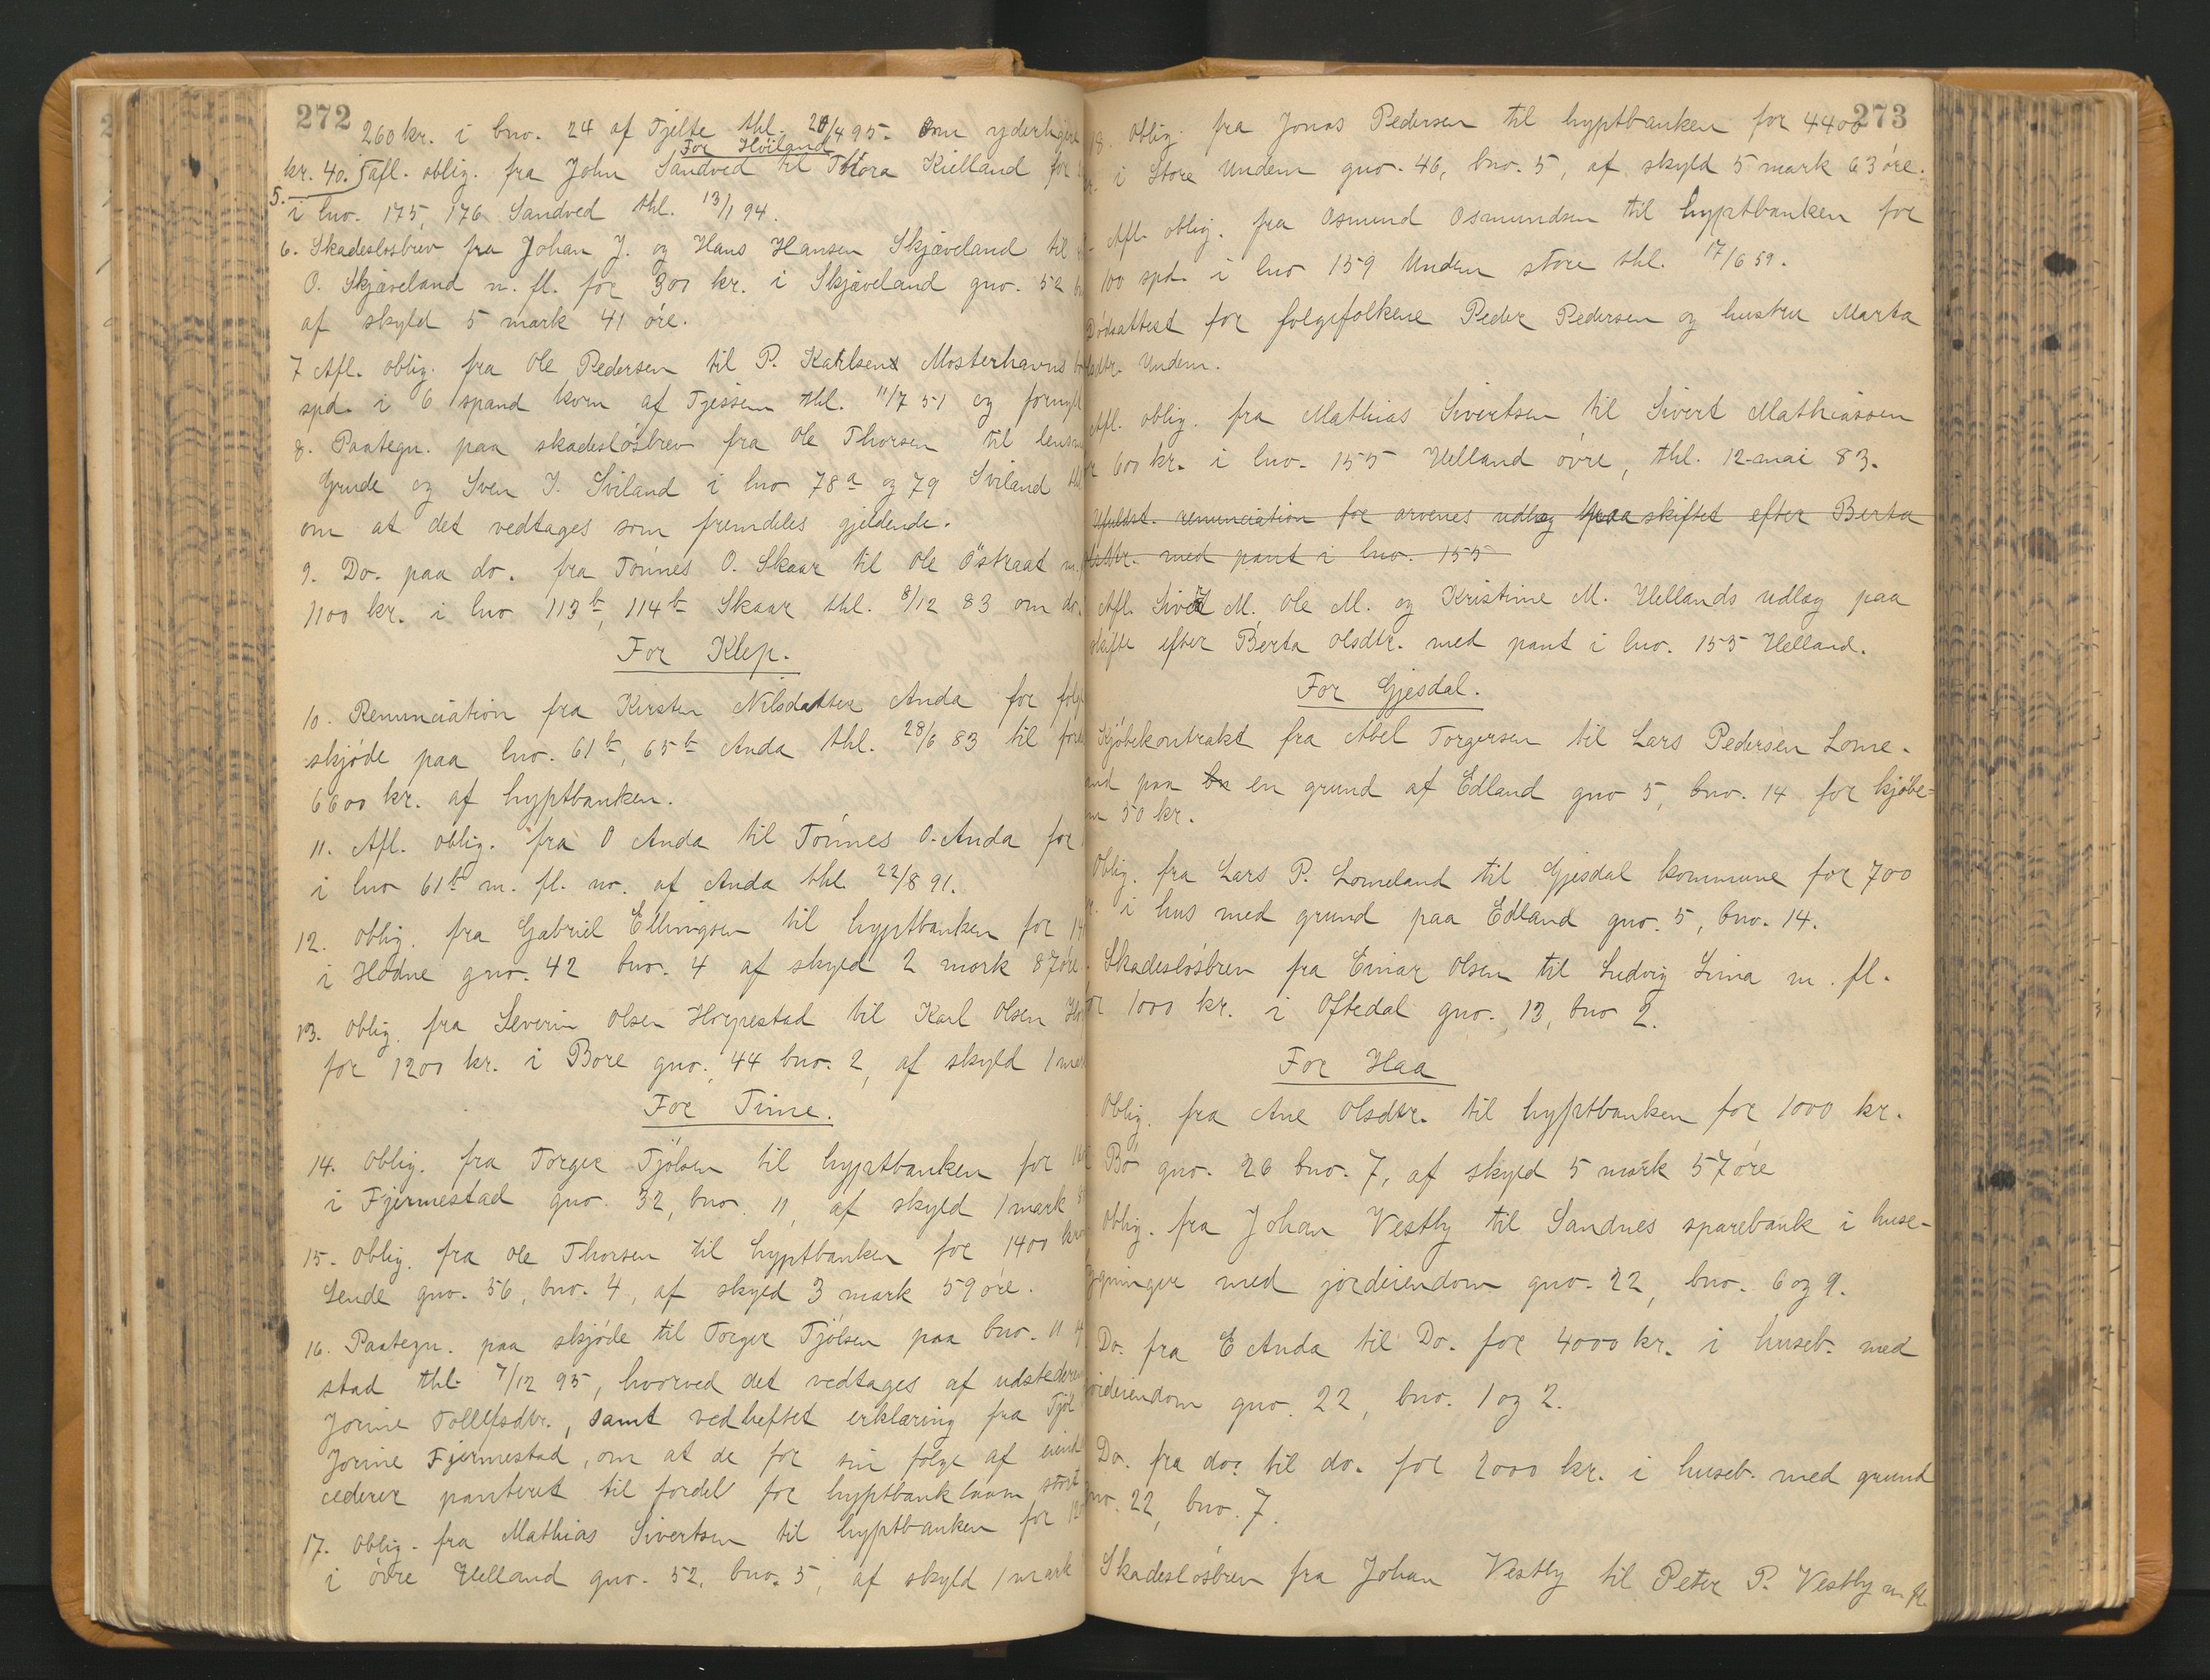 272
260 kr. i bno. 24 af Tjelte thl. 20/4 95. Om yderligere
For Høiland
kr. 40. Afl. oblig. fra John Sandved til Thora Kielland for
5. i lno. 175, 176 Sandved thl. 13/1 94.
6. Skadesløsbrev fra Johan J. og Hans Hansen Skjæveland til
O. Skjæveland m. fl. for 300 kr. i Skjæveland gno. 52
af skyld 5 mark 41 øre.
7 Afl. oblig. fra Ole Pedersen til P. Karlsens Mosterhavns
spd. i 6 spand korn af Tjessem thl. 11/7 51 og fornyet
8. Paategn. paa skadesløsbrev fra Ole Thorsen til lensm
Grude og Sven I. Sviland i lno 78a og 79 Sviland thl
om at det vedtages som fremdeles gjeldende.
9. Do. paa do. fra Tønnes O. Skaar til Ole Östraat m.
1100 kr. i lno 113b, 114b Skaar thl. 8/12 83 om do.
For Klep.
10. Renunciation fra Kirsten Nilsdatter Anda for følge
skjøde paa lno. 61b, 65b Anda thl. 28/6 83 til
6600 kr. af hyptbanken.
11. Afl. oblig. fra O Anda til Tønnes O. Anda for
i lno 61b m. fl. no. af Anda thl. 22/8 91.
12. Oblig. fra Gabriel Ellingsen til hyptbanken for
i Hodne gno. 42 bno. 4 af skyld 2 mark 87 øre.
13. Oblig. fra Severin Olsen Horpestad til Karl Olsen
for 1200 kr. i Bore gno. 44 bno. 2, af skyld 1
For Time.
14. Oblig. fra Torger Tjölsen til hyptbanken for
i Fjermestad gno. 32, bno. 11, af skyld 1 mark
15. Oblig. fra Ole Thorsen til hyptbanken for 1400 kr
Lende gno. 56, bno. 4, af skyld 3 mark 59 øre.
16. Paategn. paa skjøde til Torger Tjölsen paa bno. 11
stad thl. 7/12 95, hvorved det vedtages af udstederen
Jorine Tollefsdtr., samt vedheftet erklæring fra Tjöl
Jorine Fjermestad, om at de for sin følge af eiend
cederer panteret til fordel for hyptbanklaan stort
17. Oblig. fra Mathias Sivertsen til hyptbanken for
i øvre Helland gno. 52, bno. 5, af skyld 1 mark
273
18. Oblig. fra Jonas Pedersen til hyptbanken for 4400
kr. i Store Undem gno. 46, bno. 5, af skyld 5 mark 63 øre.
Afl. oblig. fra Osmund Osmundsen til hyptbanken for
100 spd. i lno 159 Undem store thl. 17/6 59.
Dødsattest for følgefolkene Peder Pedersen og hustru Marta
Undem.
Afl. oblig. fra Mathias Sivertsen til Sivert Mathiassen
600 kr. i lno. 155 Helland øvre, thl. 12 mai 83.
renunciation for arvenes udlæg paa skiftet efter Berta
med pant i lno. 155
Afl. Sivert M, Ole M. og Kristine M. Hellands udlæg paa
skifte efter Berta Olsdtr. med pant i lno. 155 Helland.
For Gjesdal.
Kjøbekontrakt fra Abel Torgersen til Lars Pedersen Lome-
land paa en grund af Edland gno 5, bno. 14 for kjøbe-
sum 50 kr.
Oblig. fra Lars P. Lomeland til Gjesdal kommune for 700
kr. i hus med grund paa Edland gno. 5, bno. 14.
Skadesløsbrev fra Einar Olsen til Ludvig Lima m. fl.
for 1000 kr. i Oftedal gno. 13, bno 2.
For Haa
Oblig. fra Ane Olsdtr. til hyptbanken for 1000 kr.
Bø gno. 26 bno. 7, af skyld 5 mark 57 øre
Oblig. fra Johan Vestly til Sandnes sparebank i huse-
bygninger med jordeiendom gno. 22, bno. 6 og 9.
Do. fra E Anda til Do. for 4000 kr. i huseb. med
jordeiendom gno. 22, bno. 1 og 2.
Do. fra do. til do. for 2000 kr. i huseb. med grund
gno. 22, bno. 7.
Skadesløsbrev fra Johan Vestly til Peter P. Vestly m. fl.